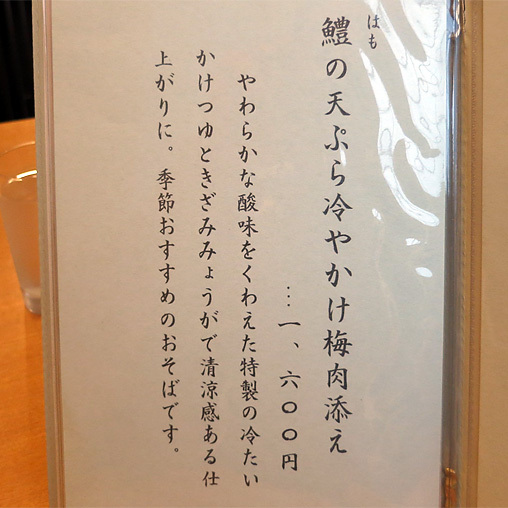 はも
鱧の天ぷら冷やかけ梅肉添え
…一、六〇〇円
やわらかな酸味をくわえた特製の冷たい
かけつゆときざみみょうがで清涼感ある仕
上がりに。季節おすすめのおそばです。